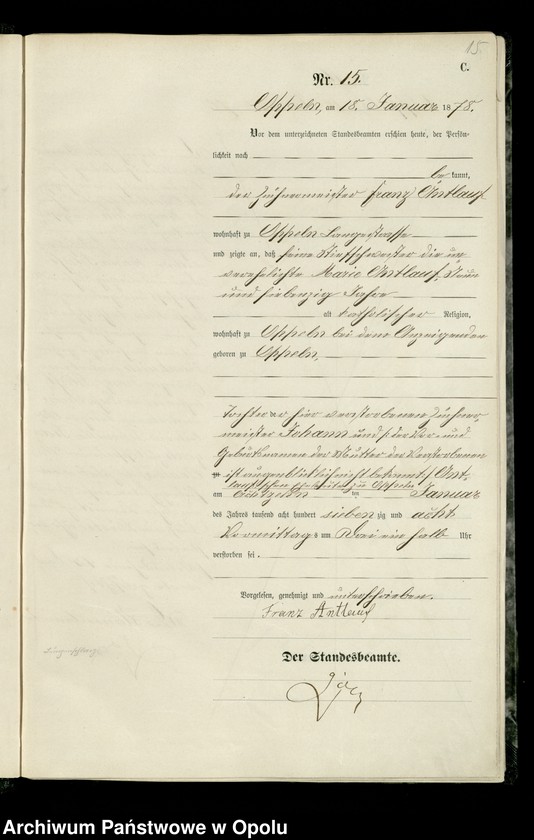 15.
C.
Nr. 15.
Oppeln, am 18. Januar 1878.
Vor dem unterzeichneten Standesbeamten erschien heute, der Persön-
lichkeit nach
be kannt,
der Züchnermeister Franz Antlauf
wohnhaft zu Oppeln Langestrasse
und zeigte an, daß seine Stiefschwester die un
verehelichte Marie Antlauf, Neun
und siebenzig Jahre
alt katholischer Religion,
wohnhaft zu Oppeln bei dem Anzeigenden
geboren zu Oppeln,
Tochter der hier verstorbenen Züchner
meister Johann und /: der Vor- und
Geburtsnamen der Mutter der Verstorbenen
ist augenblicklich nicht bekannt :/ Ant-
lauf'schen Eheleute zu Oppeln
am achtzehn ten Januar
des Jahres tausend acht hundert sieben zig und acht
Vormittag s um Drei ein halb Uhr
verstorben sei.
Vorgelesen, genehmigt und unterschrieben.
Franz Antlauf
Der Standesbeamte.
Archiwum Państwowe w Opolu